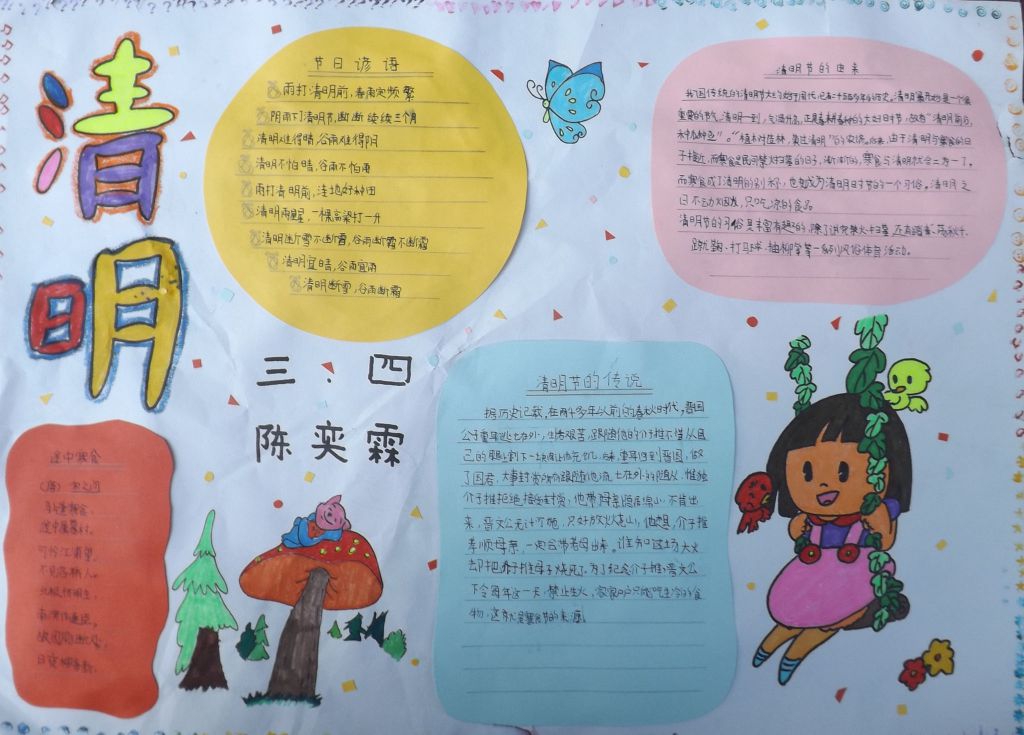 清
明
节日谚语
雨打清明前，春雨定频繁
阴雨下了清明节，断断续续三个月
清明难得晴，谷雨难得阴
清明不怕晴，谷雨不怕雨
雨打清明前，洼地好种田
清明雨星星，一棵高粱打一升
清明断雪不断霜，谷雨断霜不断霜
清明宜晴，谷雨宜雨
清明断雪，谷雨断霜
清明节的由来
我国传统的清明节大约始于周代，已有二千五百多年的历史。清明最开始是一个很
重要的节气，清明一到，气温升高，正是春耕春种的大好时节，故有"清明前后，
种瓜种豆"。"植树造林，莫过清明"的农谚。后来，由于清明与寒食的日
子接近，而寒食是民间禁火扫墓的日子，渐渐的，寒食与清明就合二为一了。
而寒食成了清明的别称，也变成为清明时节的一个习俗。清明之
日不动烟火，只吃凉的食品
清明节的习俗是丰富有趣的，除了讲究禁火、扫墓，还有踏青、荡秋千、
蹴鞠、打马球、插柳等一系列风俗体育活动。
三．四
陈奕霖
清明节的传说
据历史记载，在两千多年以前的春秋时代，晋国
公子重耳逃亡在外，生活艰苦，跟随他的介子推不惜从自
己的腿上割下一块肉让他充饥。后来，重耳回到晋国，做
了国君，大事封赏所有跟随他流亡在外的随从，惟独
介子推拒绝接受封赏，他带母亲隐居绵山，不肯出
来，晋文公无计可施，只好放火烧山，他想，介子推
孝顺母亲，一定会带着母出来。谁知这场大火
却把介子推母子烧死了。为了纪念介子推，晋文公
下令每年这一天，禁止生火，家家户户只能吃生冷的食
物，这就是寒食节的来源。
途中寒食
（唐）宋之问
马上逢寒食，
途中属暮春。
可怜江浦望，
不见洛桥人。
北极怀明主，
南溟作逐臣。
故园肠断处，
日夜柳条新。